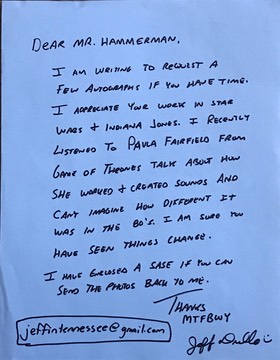 DEAR MR. HAMMERMAN,
I AM WRITING TO REQUEST A
FEW AUTOGRAPHS IF YOU HAVE TIME.
I APPRECIATE YOUR WORK IN STAR
WARS + INDIANA JONES. I RECENTLY
LISTENED TO PAULA FAIRFIELD FROM
GAME OF THRONES TALK ABOUT HOW
SHE WORKED + CREATED SOUNDS AND
CANT IMAGINE HOW DIFFERENT IT
WAS IN THE 80'S. I AM SURE YOU
HAVE SEEN THINGS CHANGE.
I HAVE ENCLOSED A SASE IF YOU CAN
SEND THE PHOTOS BACK TO ME.
THANKS
MTFBWY
jeffintennessee@gmail.com
Jeff